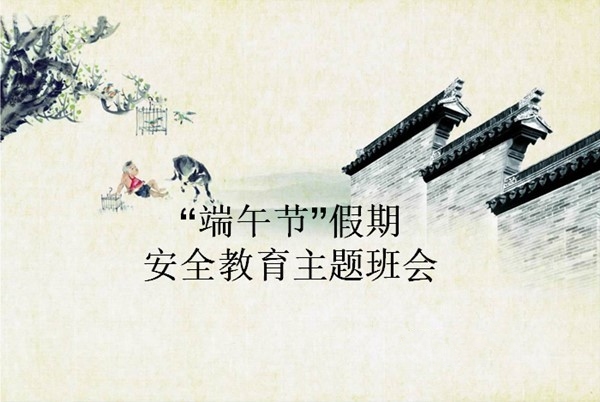 “端午节”假期
安全教育主题班会